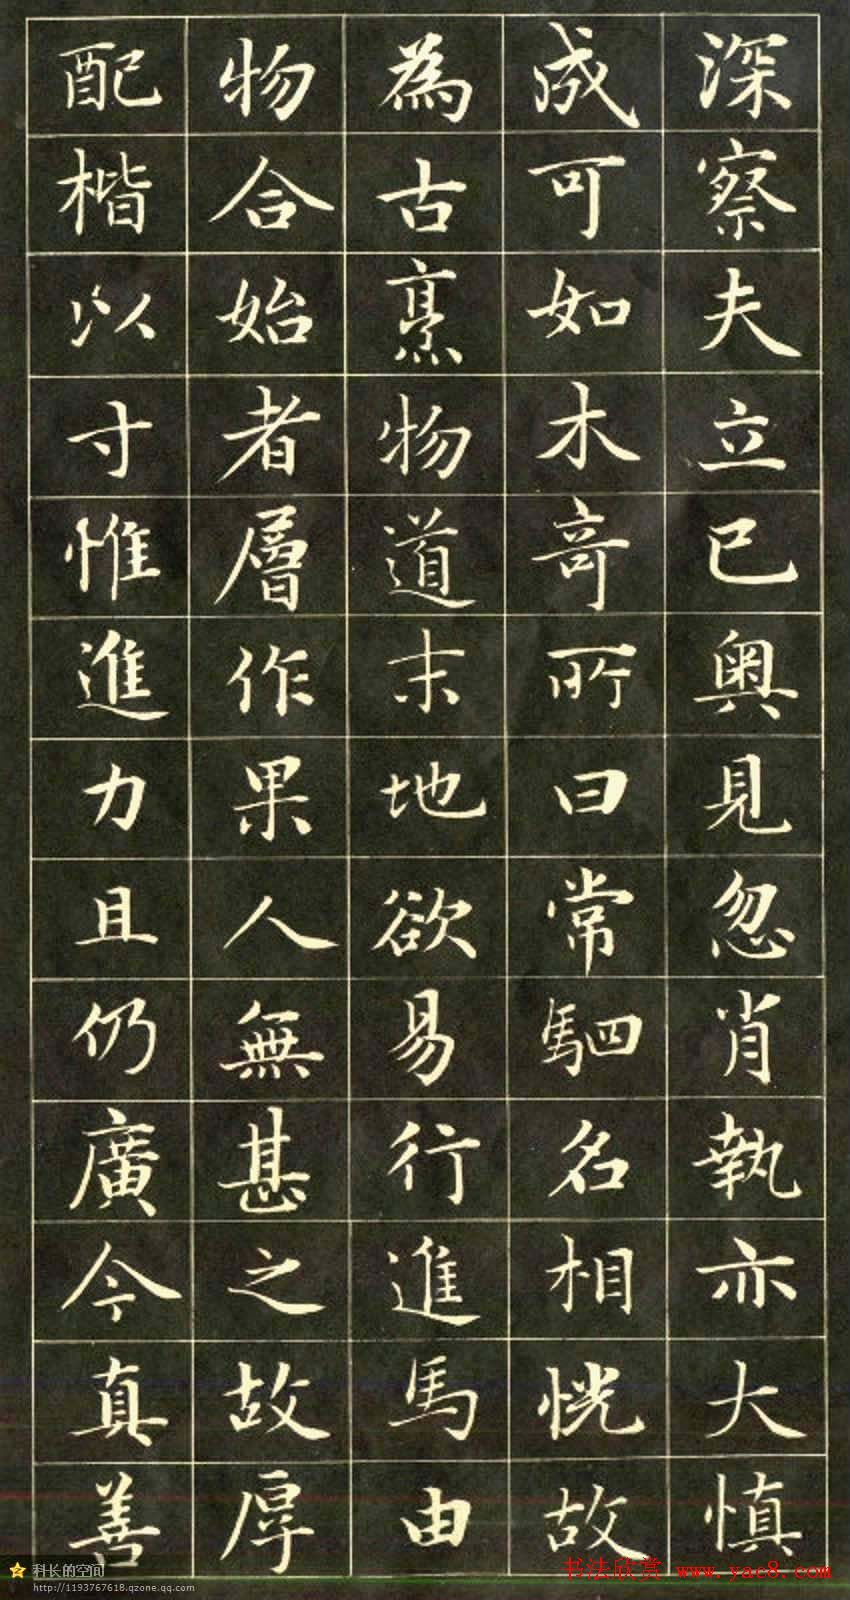 深察夫立已奥見忽肖執亦大慎
成可如木奇所曰常駟名相恍故
為古烹物道末地欲易行進馬由
物合始者層作果人無甚之故厚
配楷以寸惟進力且仍廣今真善
科长的空间
http://1193767618.qzone.qq.com
书法欣赏 www.yac8.com